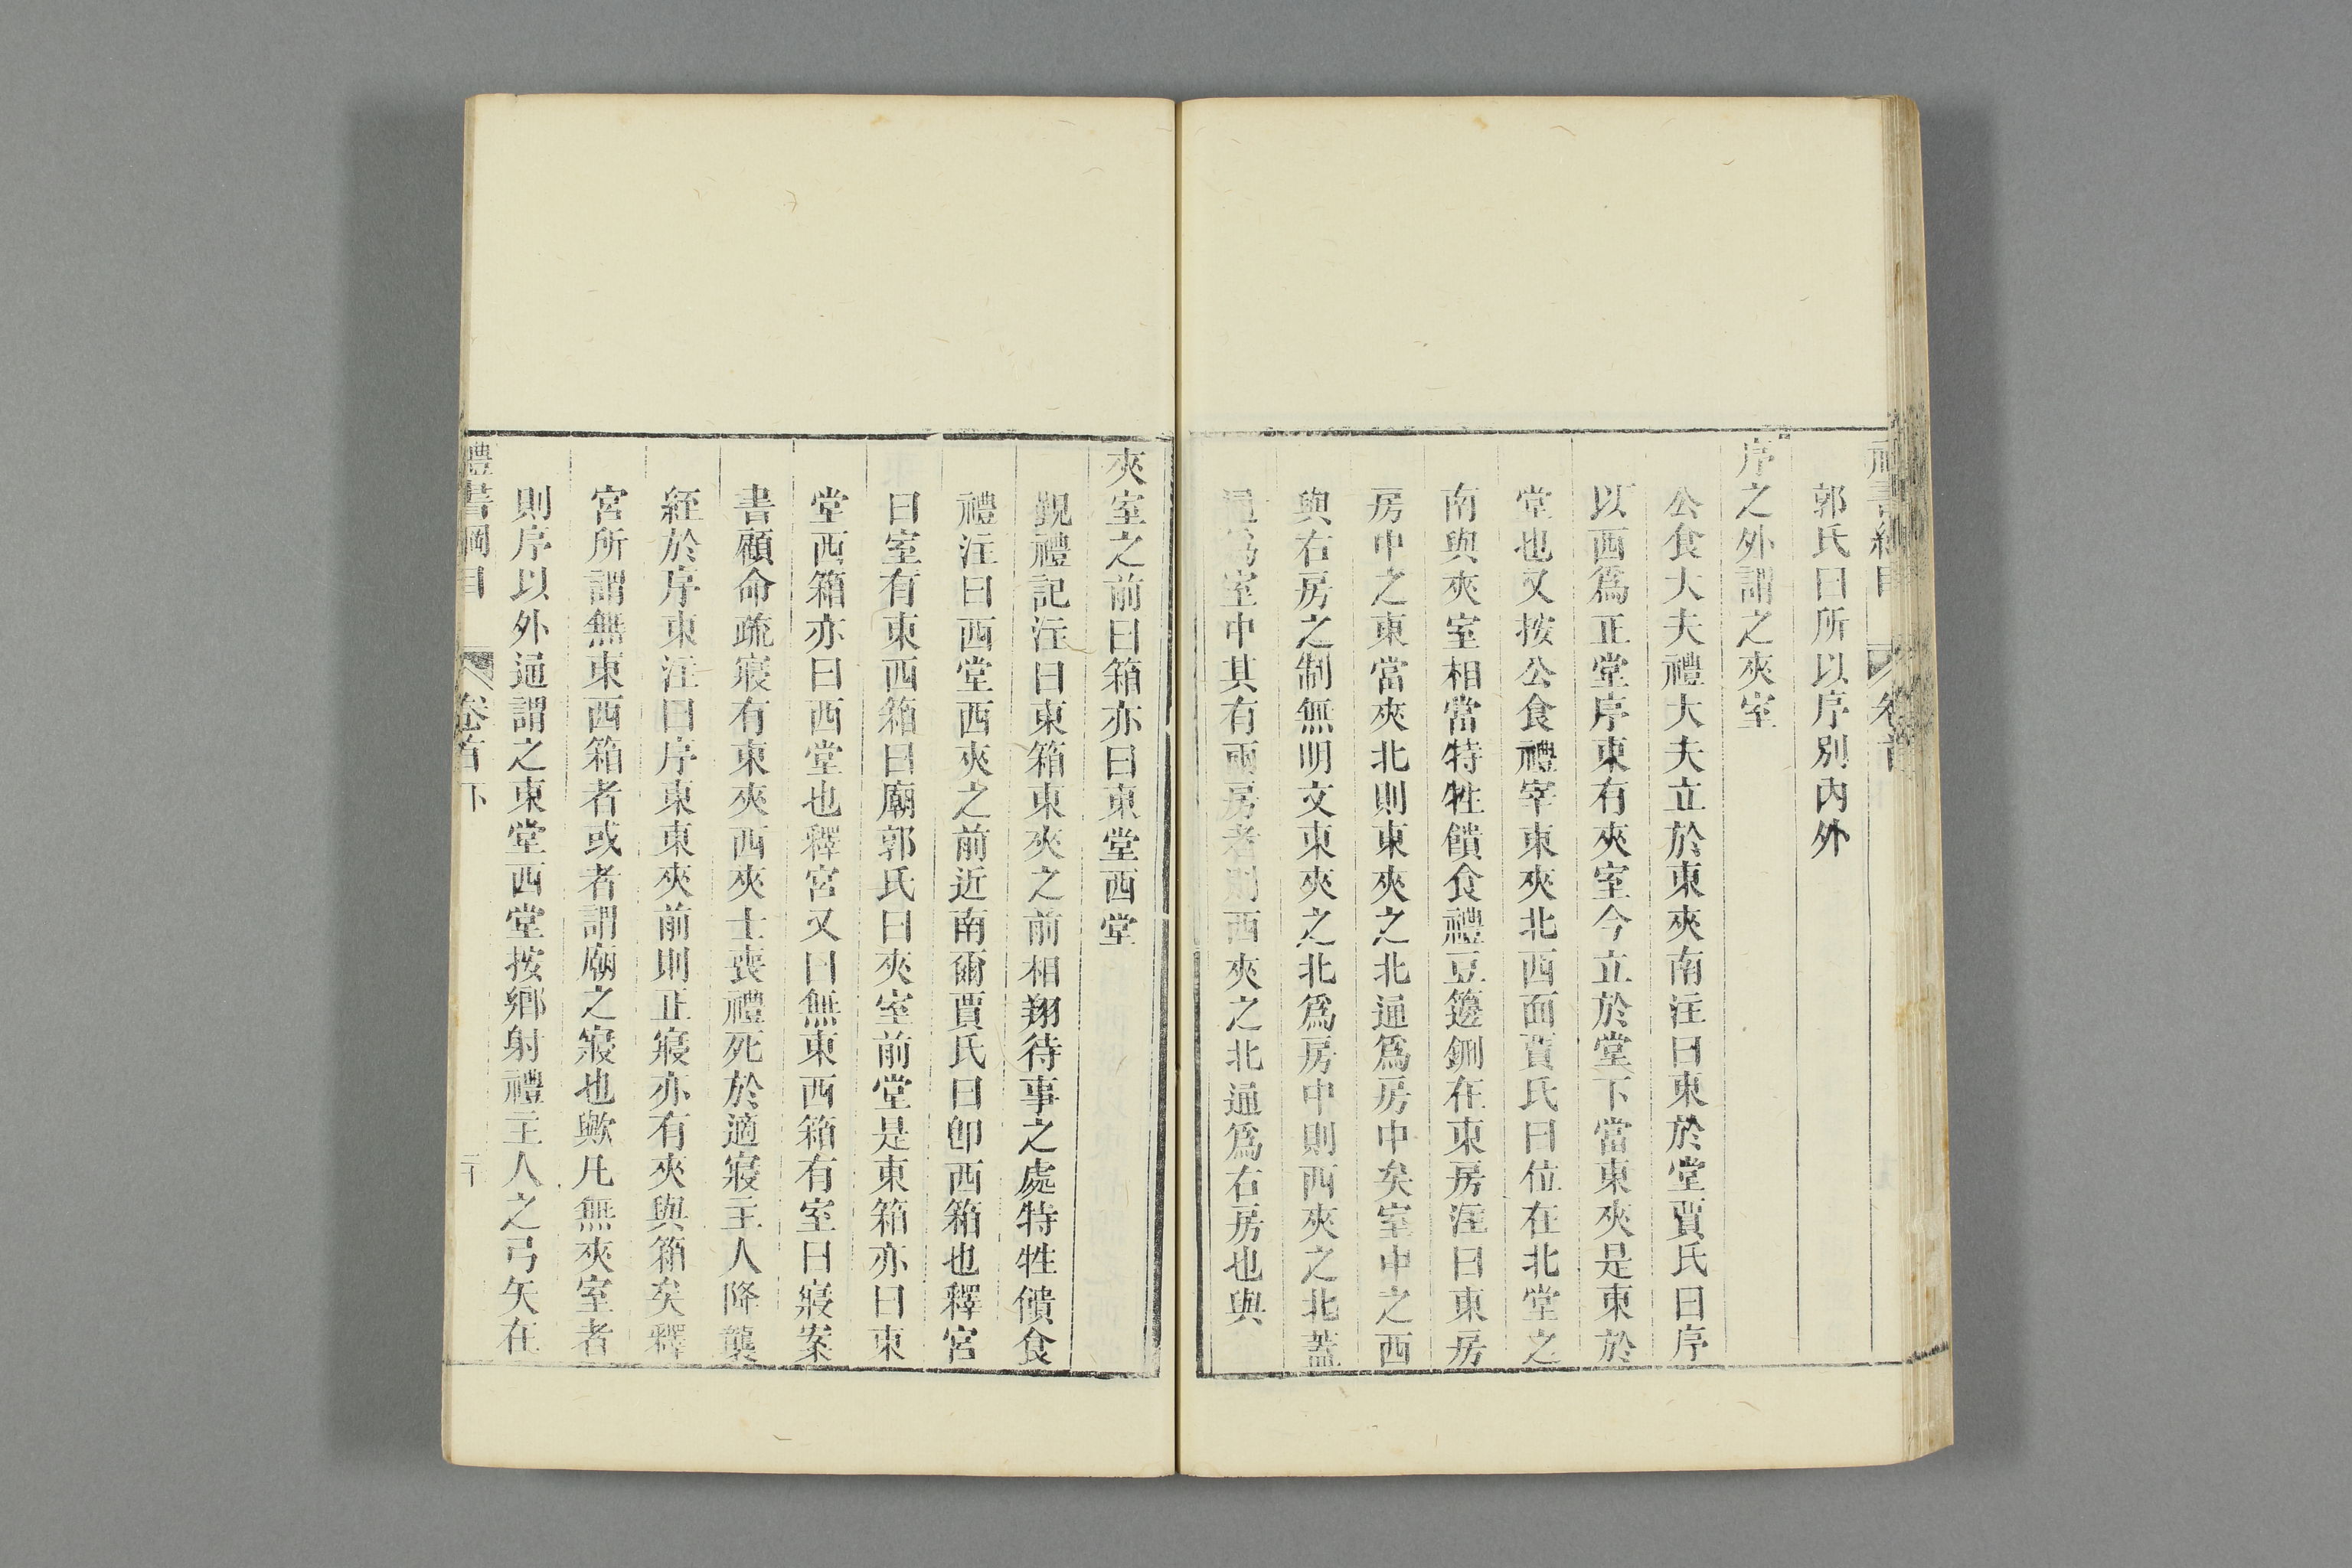 郭氏曰所以序別內外
序之外謂之夾室
公食大夫禮大夫立於東夾南注曰東於堂賈氏曰序
以西爲正堂序東有夾室今立於堂下當東夾是東於
堂也又按公食禮宰東夾北西面賈氏曰位在北堂之
南與夾室相當特牲饋食禮豆籩鉶在東房注曰東房
房中之東當夾北則東夾之北通爲房中矣室中之西
與右房之制無明文東夾之北爲房中則西夾之北蓋
通爲室中其有兩房者則西夾之北通爲右房也與
夾室之前曰箱亦曰東堂西堂
覲禮記注曰東箱東夾之前相翔待事之處特牲饋食
禮注曰西堂西夾之前近南爾賈氏曰卽西箱也釋宮
曰室有東西箱曰廟郭氏曰夾室前堂是東箱亦曰東
堂西箱亦曰西堂也釋宮又曰無東西箱有室曰寢案
書顧命疏寢有東夾西夾士喪禮死於適寢主人降襲
絰於序東注曰序東東夾前則正寢亦有夾與箱矣釋
宮所謂無東西箱者或者謂廟之寢也歟凡無夾室者
則序以外通謂之東堂西堂按鄉射禮主人之弓矢在
禮書綱目 卷首下